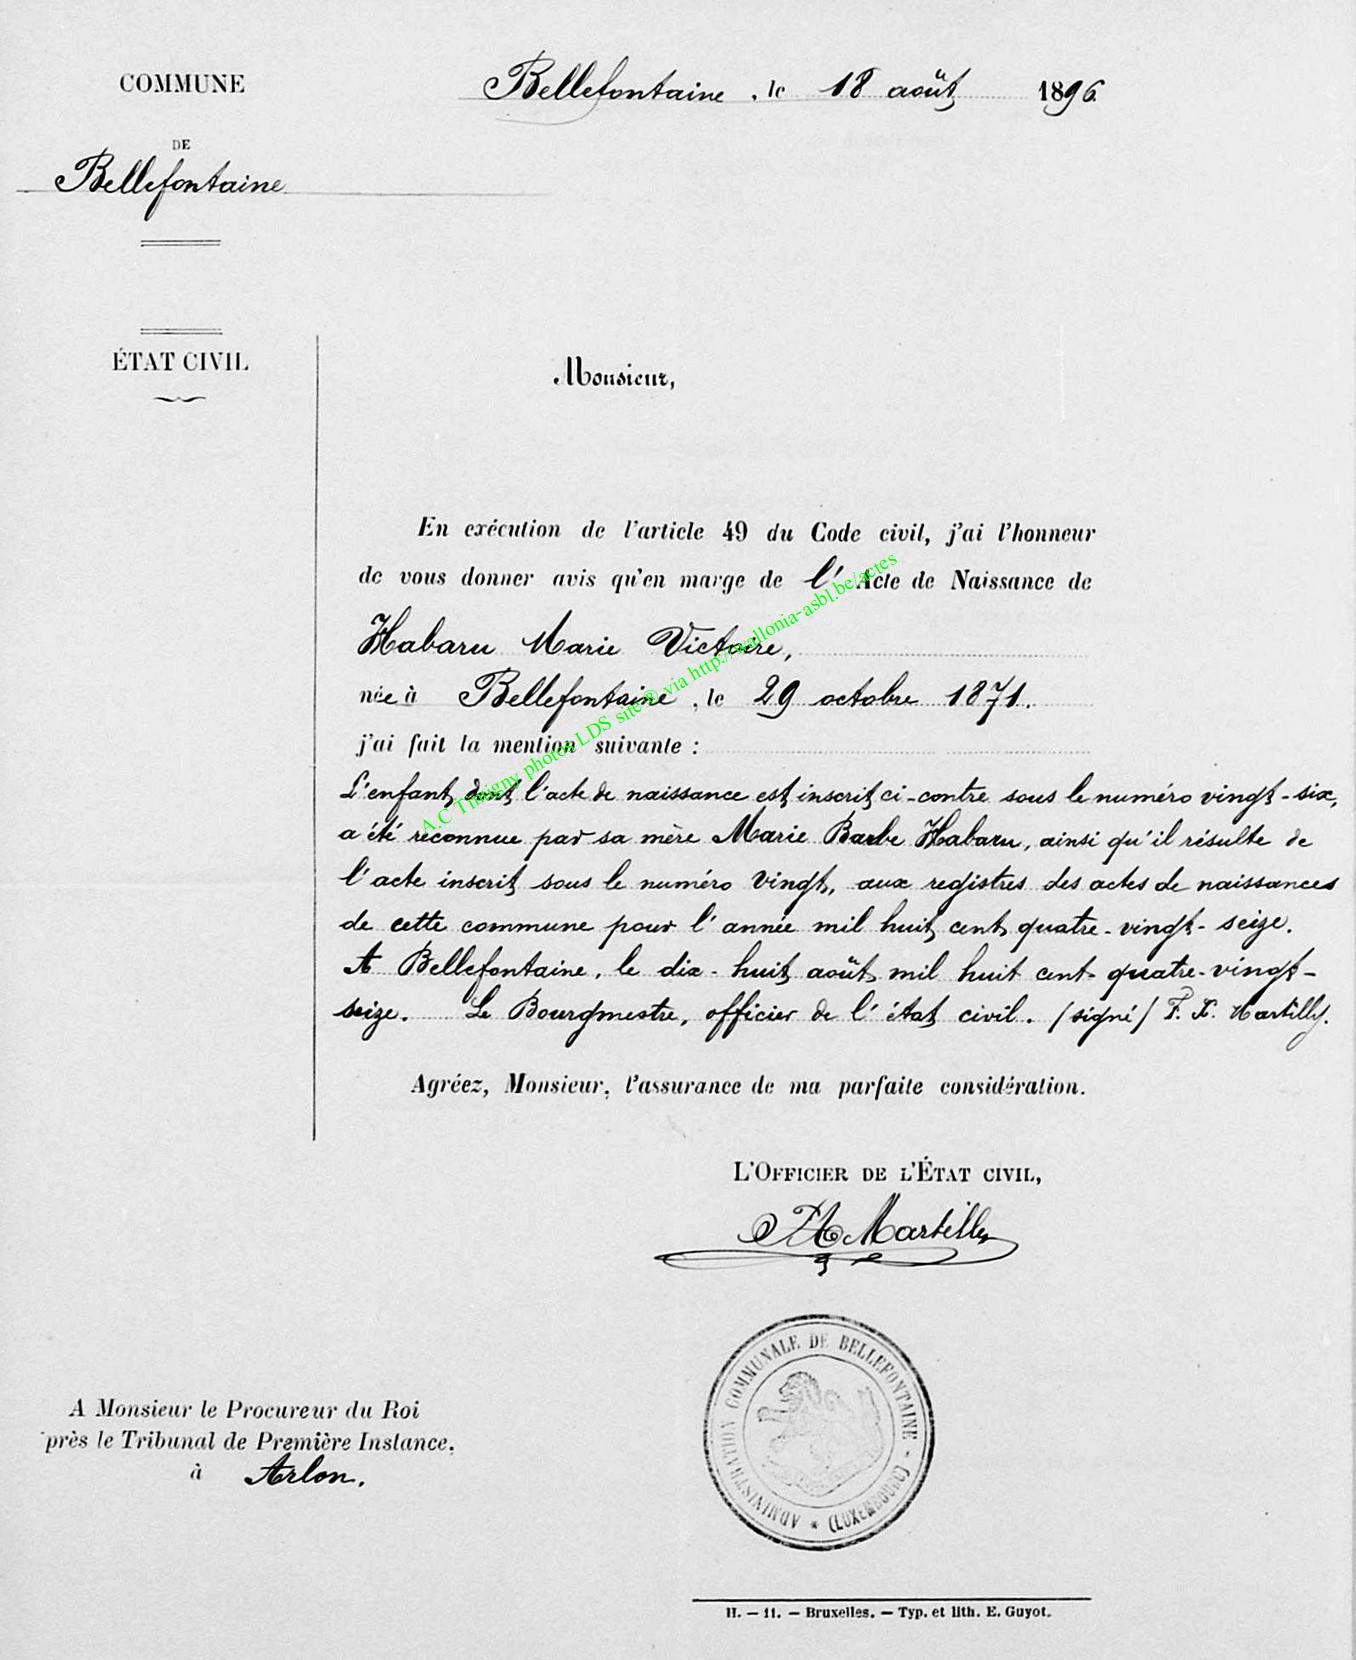 COMMUNE
DE
Bellefontaine
Bellefontaine, le 18 août 1896
ÉTAT CIVIL
Monsieur,
En exécution de l'article 49 du Code civil, j'ai l'honneur
de vous donner avis qu'en marge de l' Acte de Naissance de
Habaru Marie Victoire,
née à Bellefontaine, le 29 octobre 1871.
j'ai fait la mention suivante :
L'enfant dont l'acte de naissance est inscrit ci-contre sous le numéro vingt-six,
a été reconnue par sa mère Marie Barbe Habaru, ainsi qu'il résulte de
l'acte inscrit sous le numéro vingt, aux registres des actes de naissances
de cette commune pour l'année mil huit cent quatre-vingt-seize.
A Bellefontaine, le dix-huit août mil huit cent quatre-vingt-
seize. Le Bourgmestre, officier de l'état civil. (signé) F. X. Martilly.
Agréez, Monsieur, l'assurance de ma parfaite considération.
L'OFFICIER DE L'ÉTAT CIVIL,
Martilly
ADMINISTRATION COMMUNALE DE BELLEFONTAINE - (LUXEMBOURG) *
A Monsieur le Procureur du Roi
près le Tribunal de Première Instance,
à Arlon.
H. — 11. — Bruxelles. — Typ. et lith. E. Guyot.
A.C Tintigny photos LDS site ® via http://wallonia-asbl.be/actes